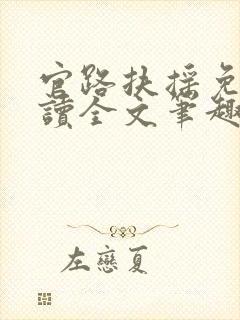 官路扶摇免
讀全文筆趣
左戀夏